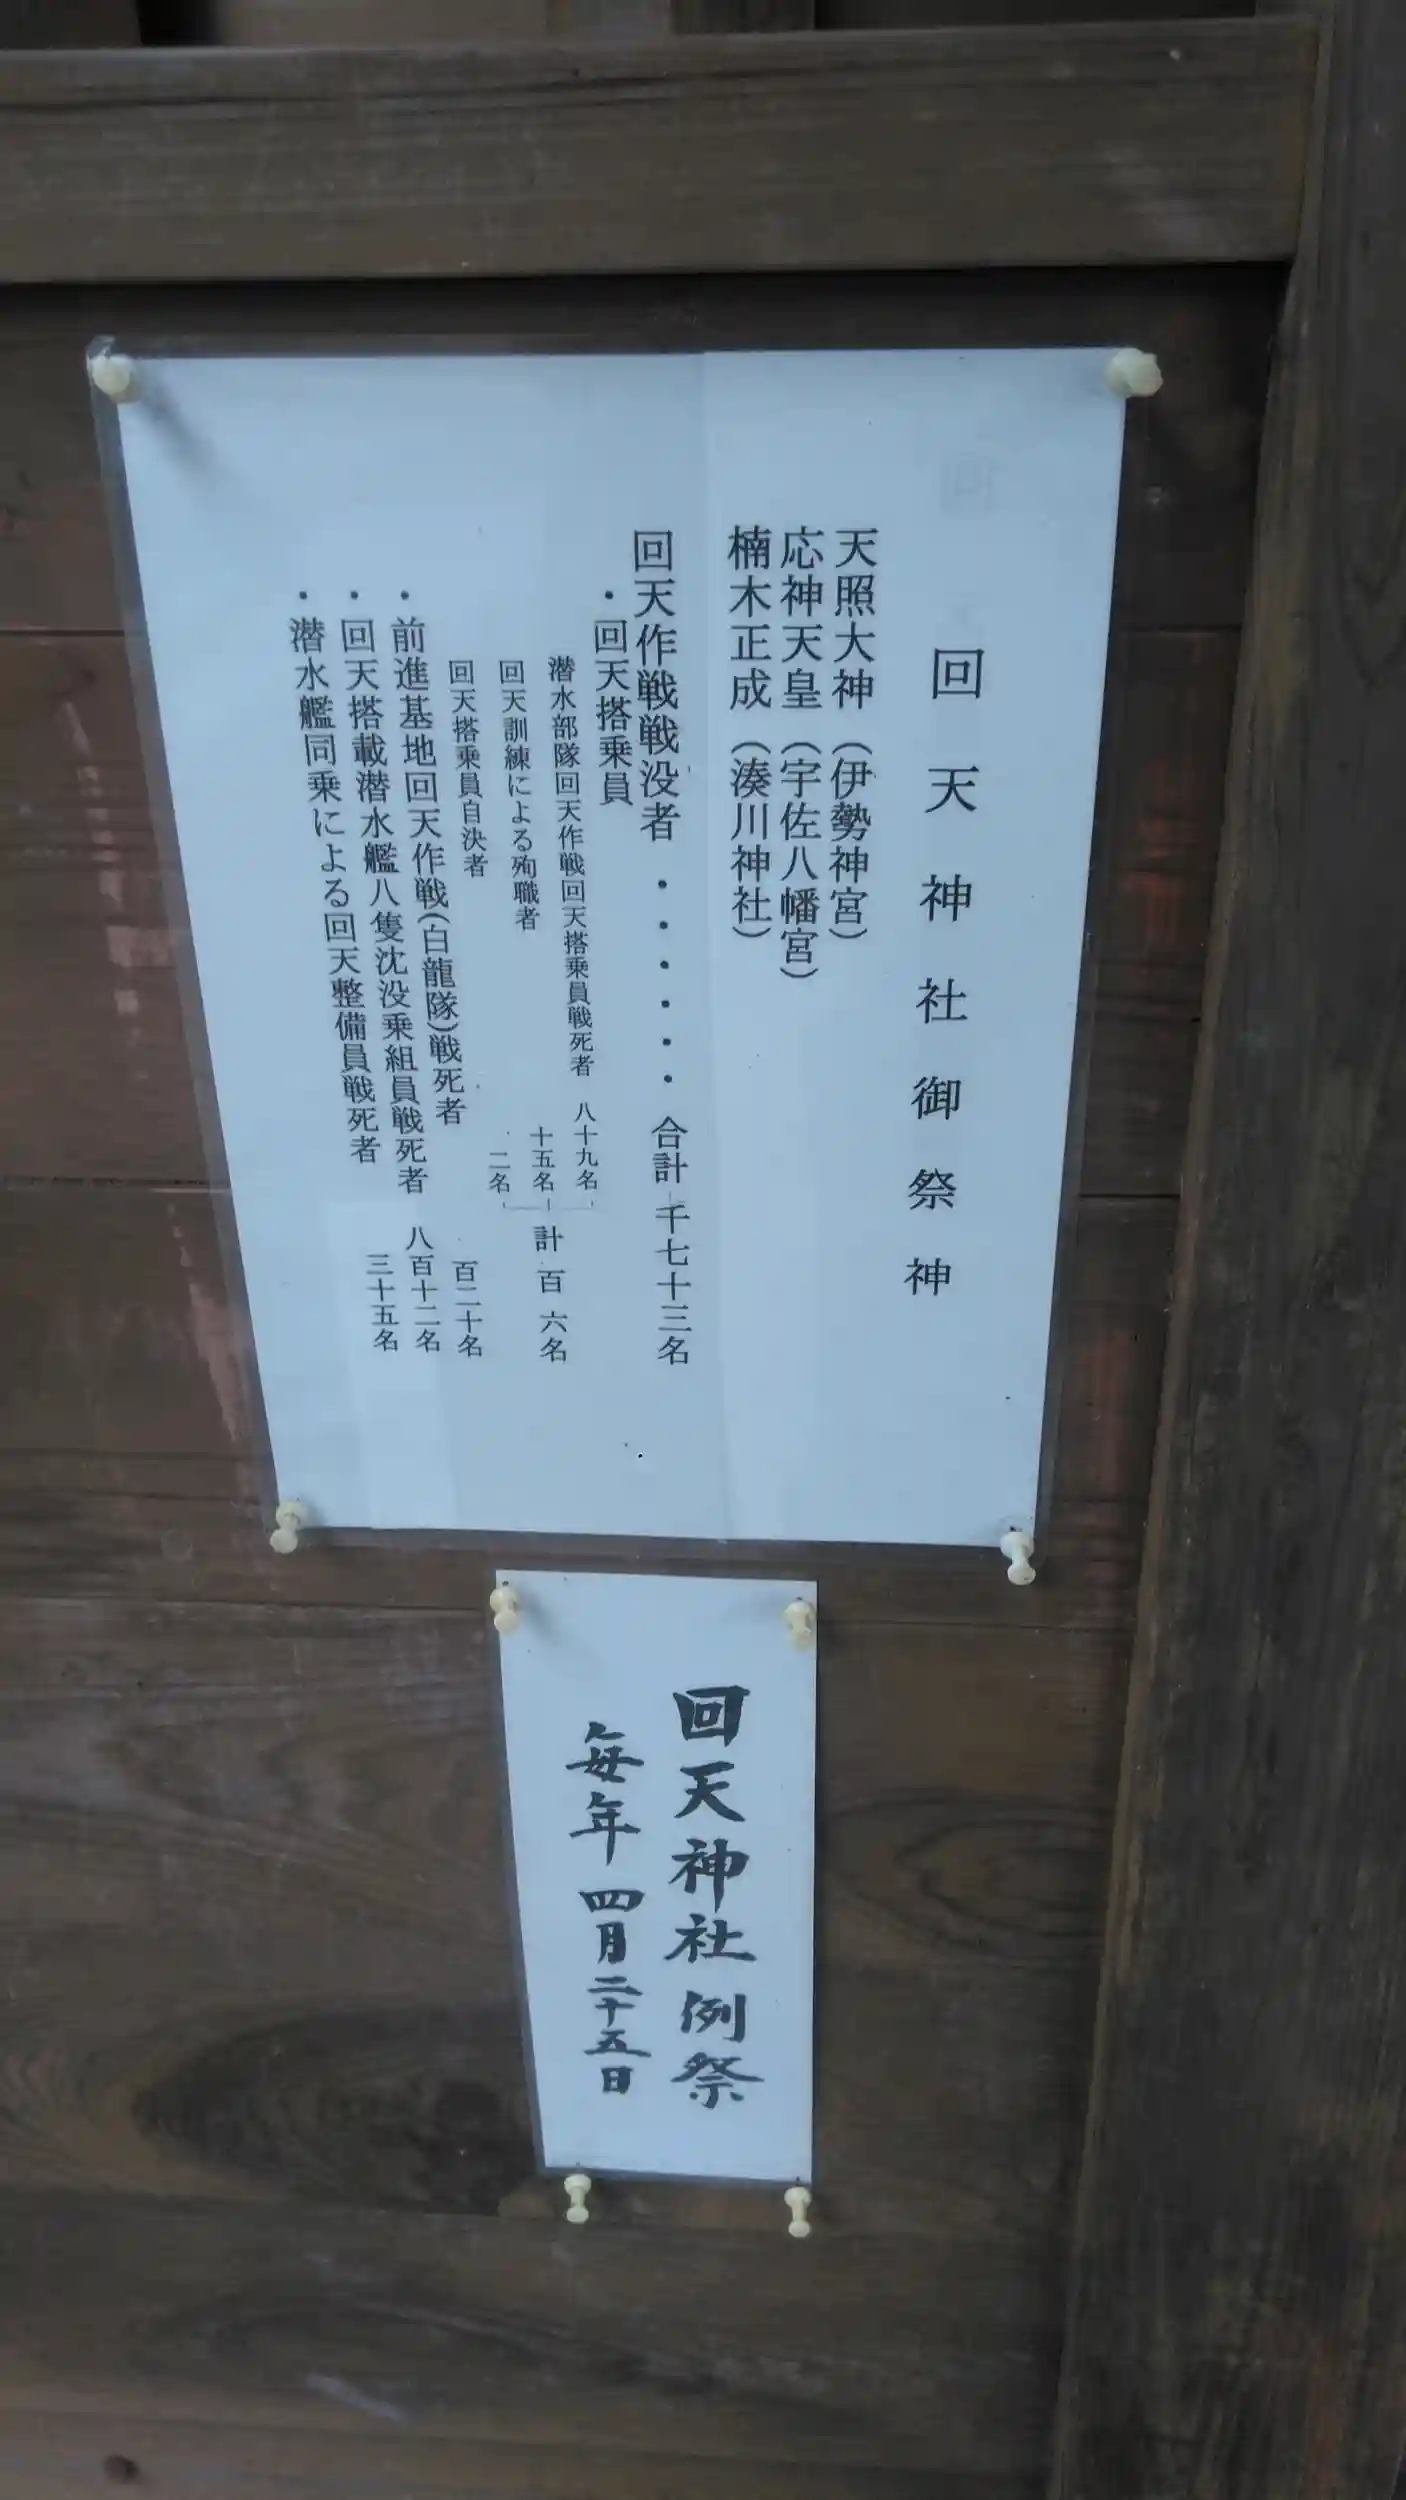 回天神社御祭神
天照大神（伊勢神宮）
応神天皇（宇佐八幡宮）
楠木正成（湊川神社）
回天作戦戦没者・・・・・・合計 千七十三名
・回天搭乗員
潜水部隊回天作戦回天搭乗員戦死者 八十九名
回天訓練による殉職者 十五名 計 百 六名
回天搭乗員自決者 二名
・前進基地回天作戦(白龍隊)戦死者 百二十名
・回天搭載潜水艦八隻沈没乗組員戦死者 八百十二名
・潜水艦同乗による回天整備員戦死者 三十五名
回天神社例祭
毎年 四月二十五日